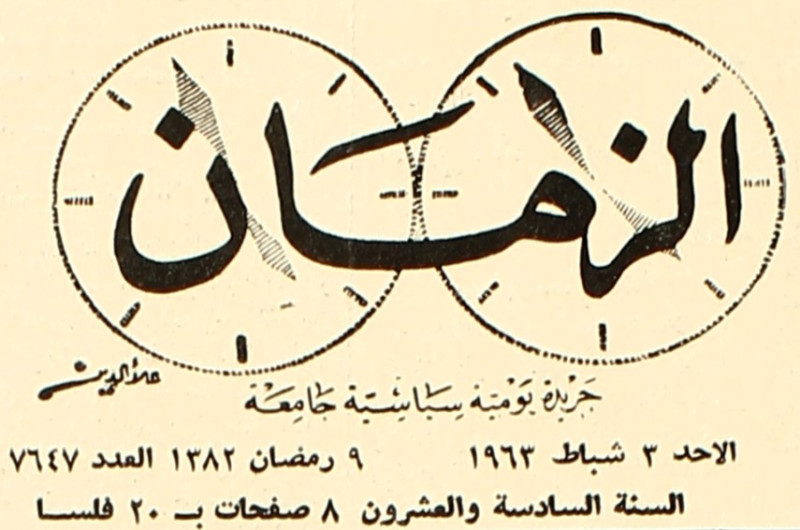 الزمان
علاء الدين
جريدة يومية سياسية جامعة
الاحد ٣ شباط ١٩٦٣ ٩ رمضان ١٣٨٢ العدد ٧٦٤٧
السنة السادسة والعشرون ٨ صفحات بـ ٢٠ فلسا